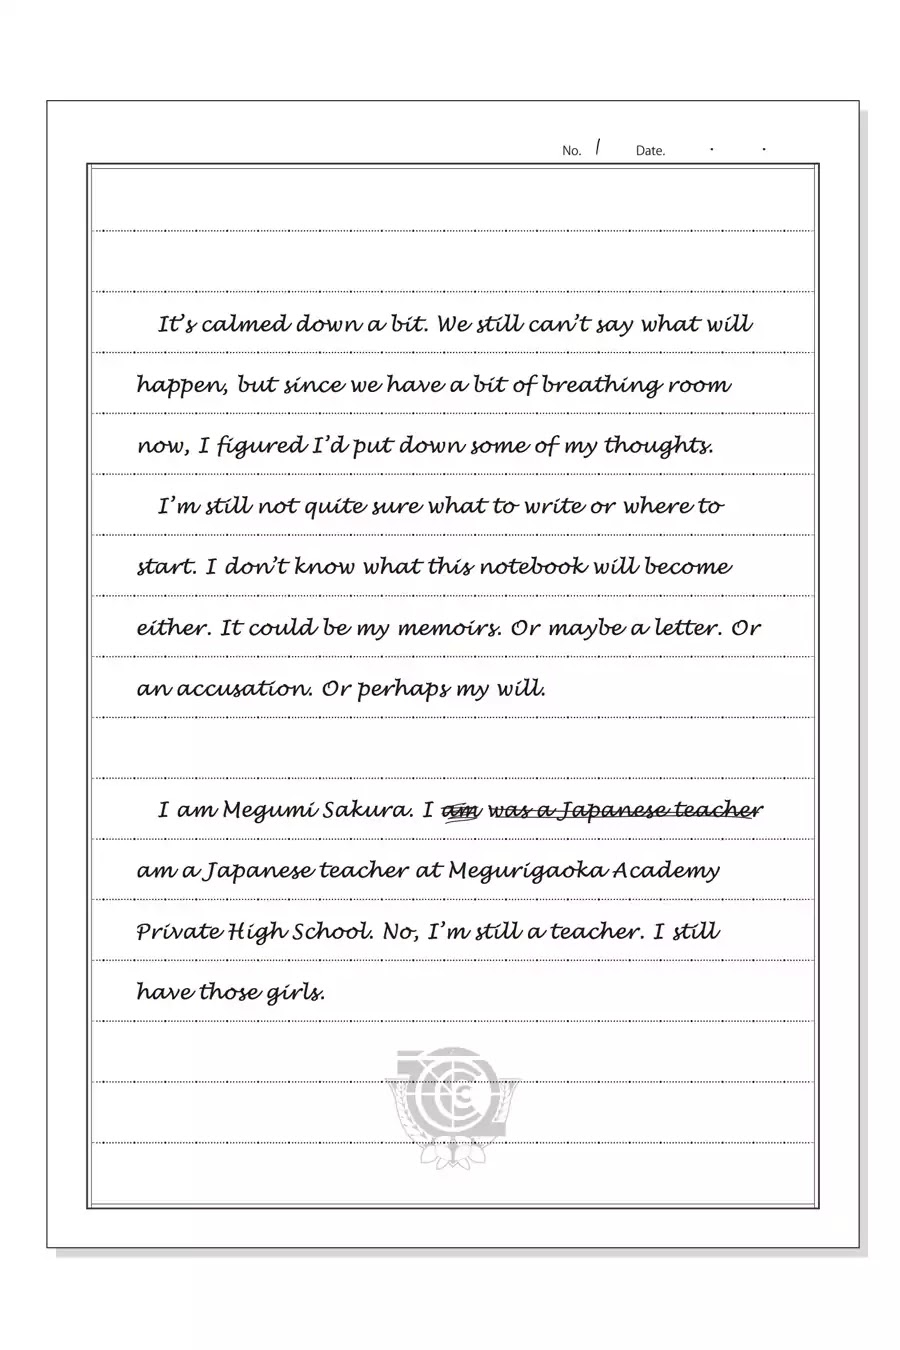 No. 1 Date. . .
It's calmed down a bit. We still can't say what will
happen, but since we have a bit of breathing room
now, I figured I'd put down some of my thoughts.
I'm still not quite sure what to write or where to
start. I don't know what this notebook will become
either. It could be my memoirs. Or maybe a letter. Or
an accusation. Or perhaps my will.
I am Megumi Sakura. I am was a Japanese teacher
am a Japanese teacher at Megurigaoka Academy
Private High School. No, I'm still a teacher. I still
have those girls.